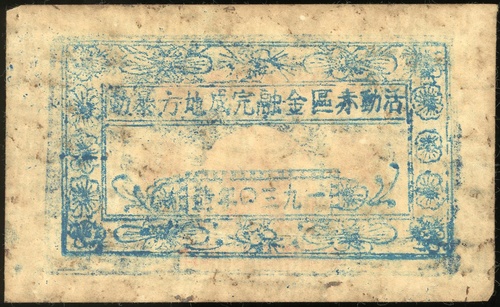 活動赤區金融完成地方暴動
一九三〇年